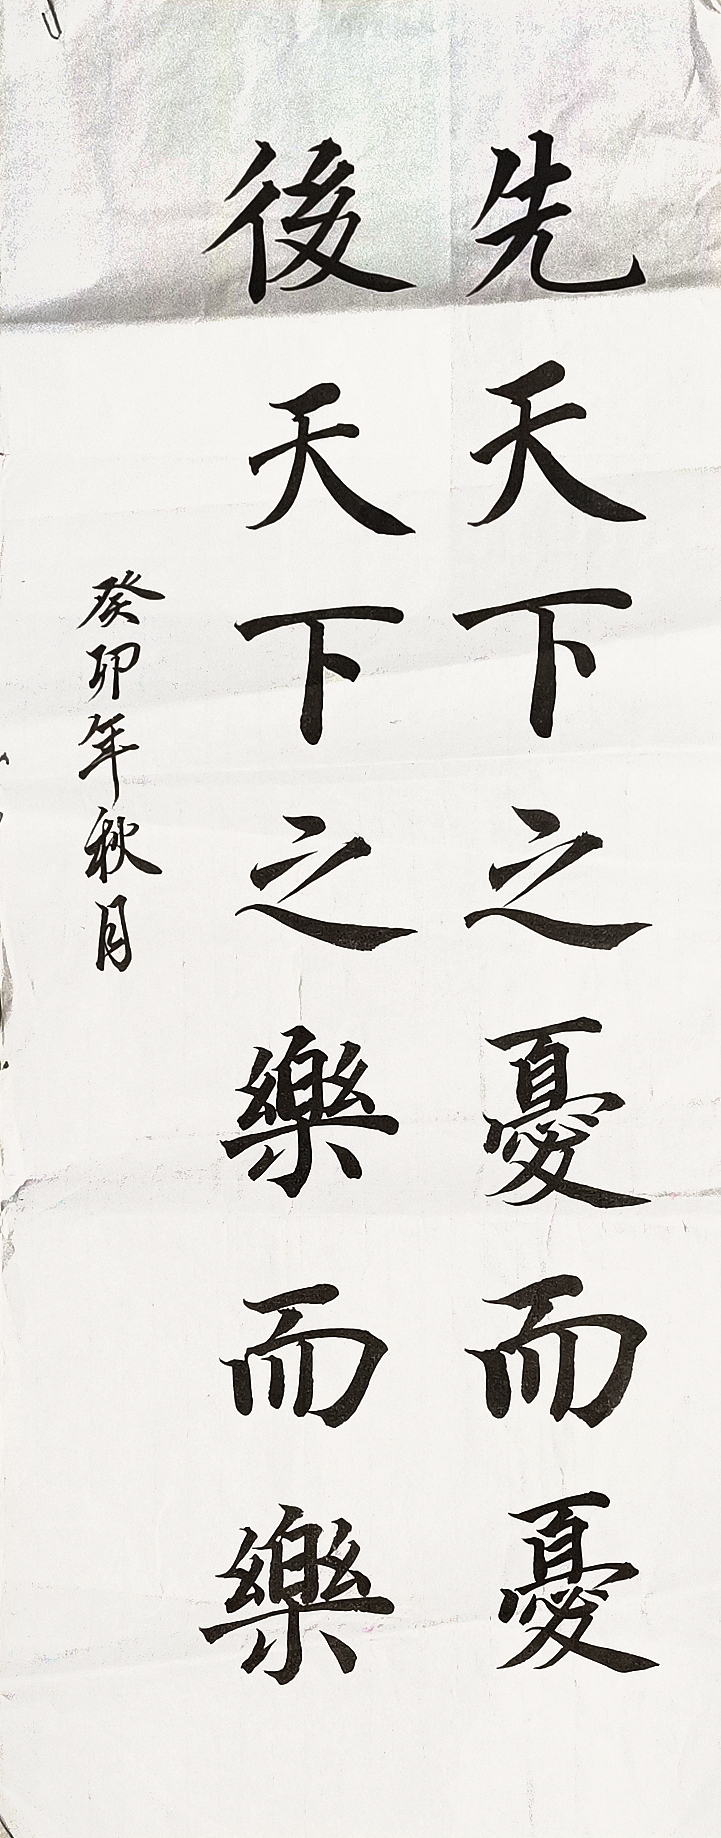 先天下之憂而憂
後天下之樂而樂
癸卯年秋月